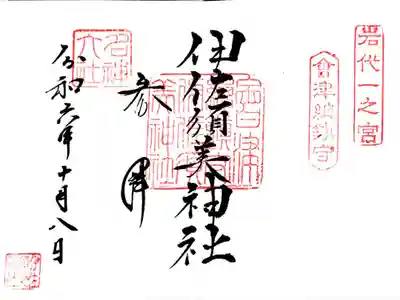 岩代一之宮
會津総鎮守
伊佐須美神社
参拝
名神大社
令和六年十月八日